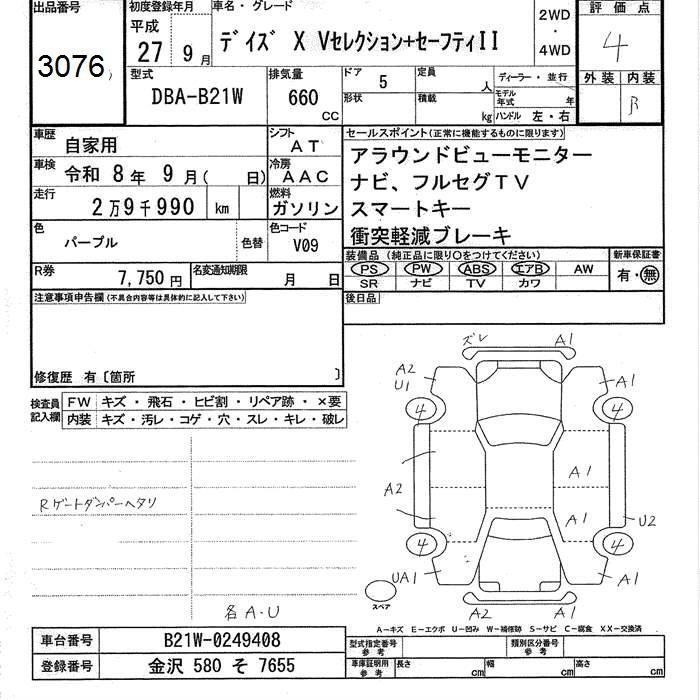 出品番号 初度登録年月 車名・グレード 2WD・4WD 評価点
3076 平成27 9月 デイズ X Vセレクション+セーフティII 4
型式 排気量 ドア 5 定員 人 ディーラー・並行 外装 内装
DBA-B21W 660 CC 形状 積載 kg モデル年式 年 B
ハンドル 左・右
車歴 自家用 シフト AT セールスポイント(正常に機能するものに限ります)
車検 令和 8年 9月( 日) 冷房 AAC アラウンドビューモニター
走行 2万9千990 km 燃料 ガソリン ナビ、フルセグTV
スマートキー
色 パープル 色替 色コード V09 衝突軽減ブレーキ
装備品 (純正品に限り○をつけてください) 新車保証書
R券 7,750円 名変通知期限 月 日 PS PW ABS エアB AW 有・無
SR ナビ TV カワ
注意事項申告欄(不具合内容等は具体的に記入して下さい) 後日品
修復歴 有〔箇所 〕
検査員記入欄 FW キズ・飛石・ヒビ割・リペア跡・×要
内装 キズ・汚レ・コゲ・穴・スレ・キレ・破レ
ズレ A1
A2 U1 A1
4 4
Rゲートダンパーヘタリ
A2 A1
A1 U2
4 4
UA1 A1
スペア
各A・U A2 A1
A-キズ E-エクボ U-凹み W-補修跡 S-サビ C-腐食 XX-交換済
車台番号 B21W-0249408 型式指定番号 参考 類別区分番号 参考
登録番号 金沢 580 そ 7655 車庫証明用 参考 長さ cm 幅 cm 高さ cm